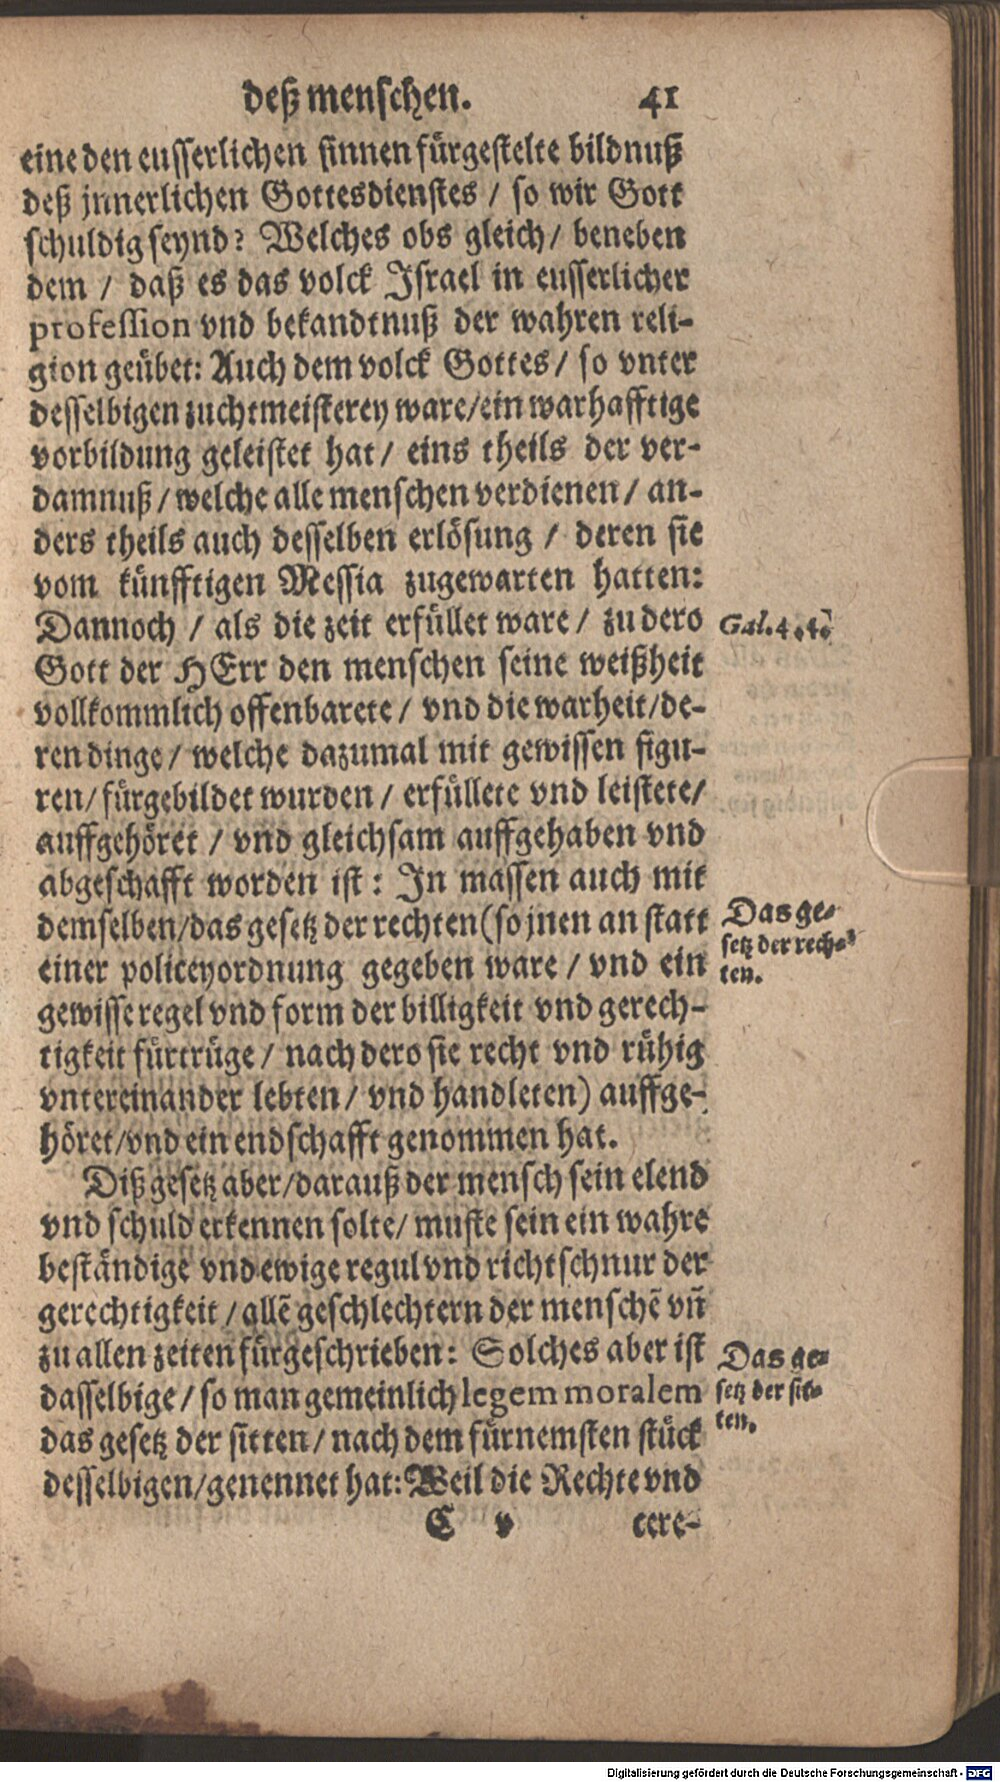 deß menschen. 41
eine den eusserlichen sinnen fürgestelte bildnuß
deß jnnerlichen Gottesdienstes / so wir Gott
schuldig seynd? Welches obs gleich / beneben
dem / daß es das volck Israel in eusserlicher
profession vnd bekandtnuß der wahren reli-
gion geübet: Auch dem volck Gottes / so vnter
desselbigen zuchtmeisterey ware / ein warhafftige
vorbildung geleistet hat / eins theils der ver-
damnuß / welche alle menschen verdienen / an-
ders theils auch desselben erlösung / deren sie
vom künfftigen Messia zugewarten hatten:
Dannoch / als die zeit erfüllet ware / zu dero
Gal. 4. 4.
Gott der HErr den menschen seine weißheit
vollkommlich offenbarete / vnd die warheit / de-
ren dinge / welche dazumal mit gewissen figu-
ren / fürgebildet wurden / erfüllete vnd leistete /
auffgehöret / vnd gleichsam auffgehaben vnd
abgeschafft worden ist: In massen auch mit
demselben / das gesetz der rechten (so jnen an statt
einer policeyordnung gegeben ware / vnd ein
gewisse regel vnd form der billigkeit vnd gerech-
tigkeit fürtrüge / nach dero sie recht vnd rühig
vntereinander lebten / vnd handleten) auffge-
höret / vnd ein endschafft genommen hat.
Das ge-
setz der rech-
ten.
Diß gesetz aber / darauß der mensch sein elend
vnd schuld erkennen solte / muste sein ein wahre
beständige vnd ewige regul vnd richtschnur der
gerechtigkeit / allē geschlechtern der menschē vñ
zu allen zeiten fürgeschrieben: Solches aber ist
dasselbige / so man gemeinlich legem moralem
das gesetz der sitten / nach dem fürnemsten stück
desselbigen / genennet hat: Weil die Rechte vnd
Das ge-
setz der sit-
ten.
C v cere-
Digitalisierung gefördert durch die Deutsche Forschungsgemeinschaft - DFG